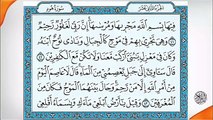 الجزء الثاني عشر سورة هود
فِيهَا بِسْمِ ٱللَّهِ مَجْر۪ىٰهَا وَمُرْسَىٰهَآ إِنَّ رَبِّى لَغَفُورٌ رَّحِيمٌ
٤١ وَهِىَ تَجْرِى بِهِمْ فِى مَوْجٍ كَٱلْجِبَالِ وَنَادَىٰ نُوحٌ ٱبْنَهُۥ
وَكَانَ فِى مَعْزِلٍ يَٰبُنَىَّ ٱرْكَب مَّعَنَا وَلَا تَكُن مَّعَ ٱلْكَٰفِرِينَ ٤٢
قَالَ سَـَٔاوِىٓ إِلَىٰ جَبَلٍ يَعْصِمُنِى مِنَ ٱلْمَآءِ قَالَ لَا عَاصِمَ ٱلْيَوْمَ
مِنْ أَمْرِ ٱللَّهِ إِلَّا مَن رَّحِمَ وَحَالَ بَيْنَهُمَا ٱلْمَوْجُ فَكَانَ مِنَ
ٱلْمُغْرَقِينَ ٤٣ وَقِيلَ يَٰٓأَرْضُ ٱبْلَعِى مَآءَكِ وَيَٰسَمَآءُ أَقْلِعِى